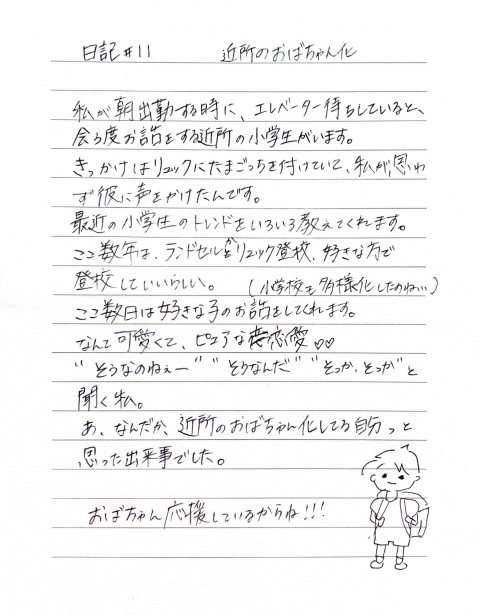 日記#11 近所のおばちゃん化
私が朝出勤する時に、エレベーター待ちしていると、
会う度お話をする近所の小学生がいます。
きっかけはリュックにたまごっちを付けていて、私が思わ
ず彼に声をかけたんです。
最近の小学生のトレンドをいろいろ教えてくれます。
ここ数年は、ランドセルかリュック登校、好きな方で
登校していいらしい。 (小学校も多様化したのね…)
ここ数日は好きな子のお話をしてくれます。
なんて可愛くて、ピュアな恋愛♡♡
"そうなのねぇー" "そうなんだ" "そっか、そっか"と
聞く私。
あ、なんだか、近所のおばちゃん化してる自分っと
思った出来事でした。
おばちゃん応援しているからね!!!